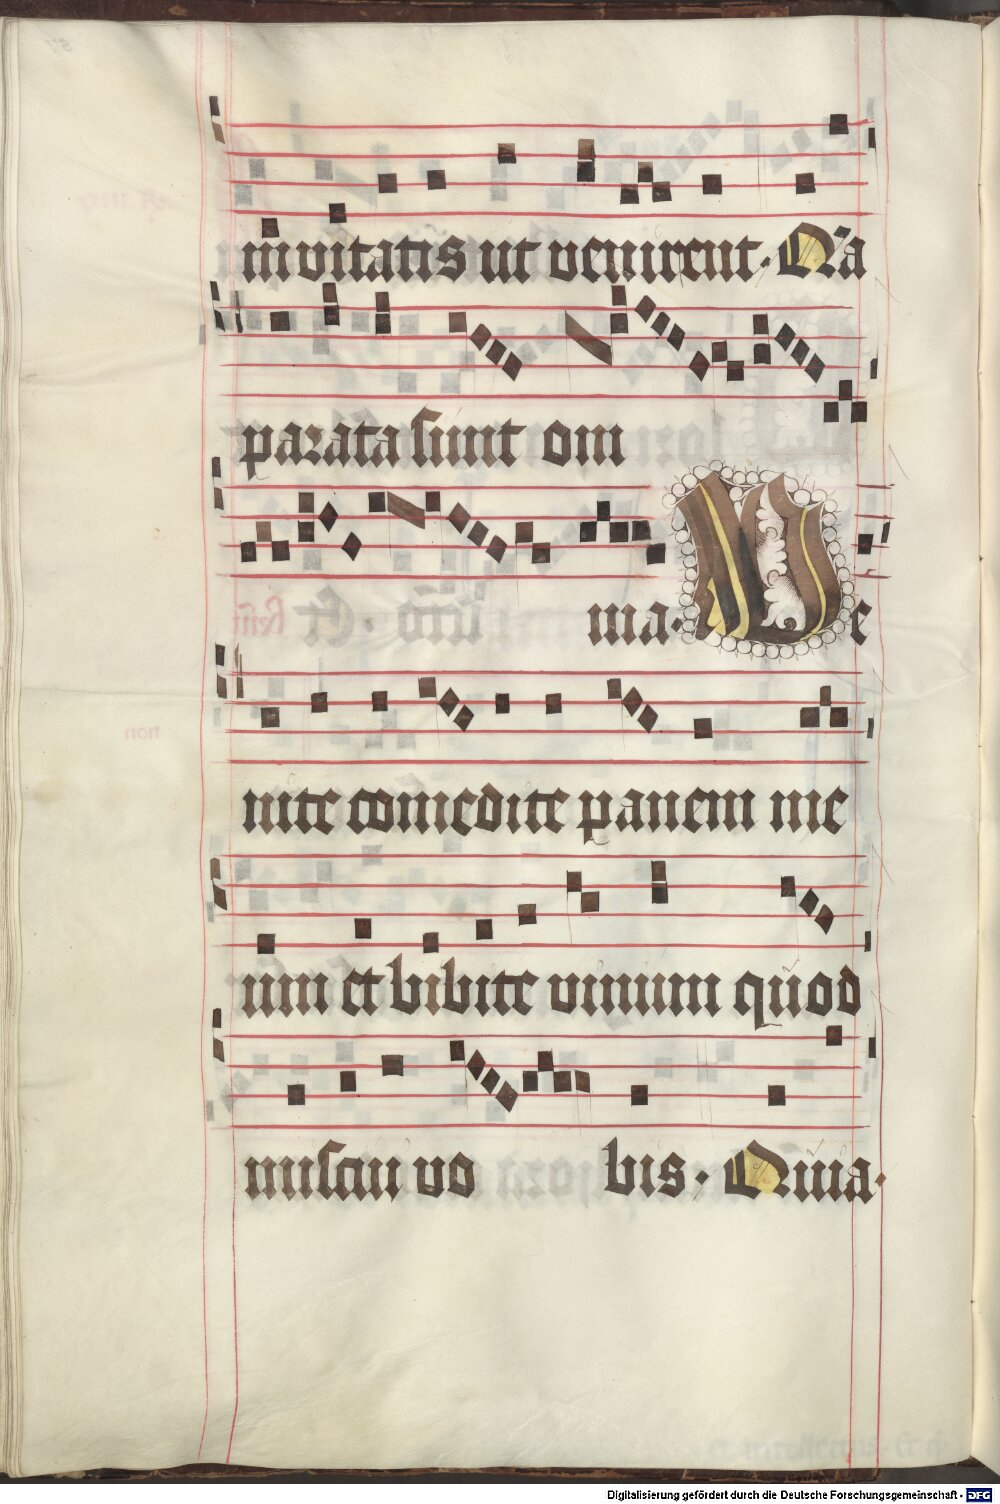 invitatis ut venirent. Q̃a
parata sunt om
nia. Ve
nite comedite panem me
um et bibite vinum quod
miscui vo bis. Quia.
Digitalisierung gefördert durch die Deutsche Forschungsgemeinschaft - DFG